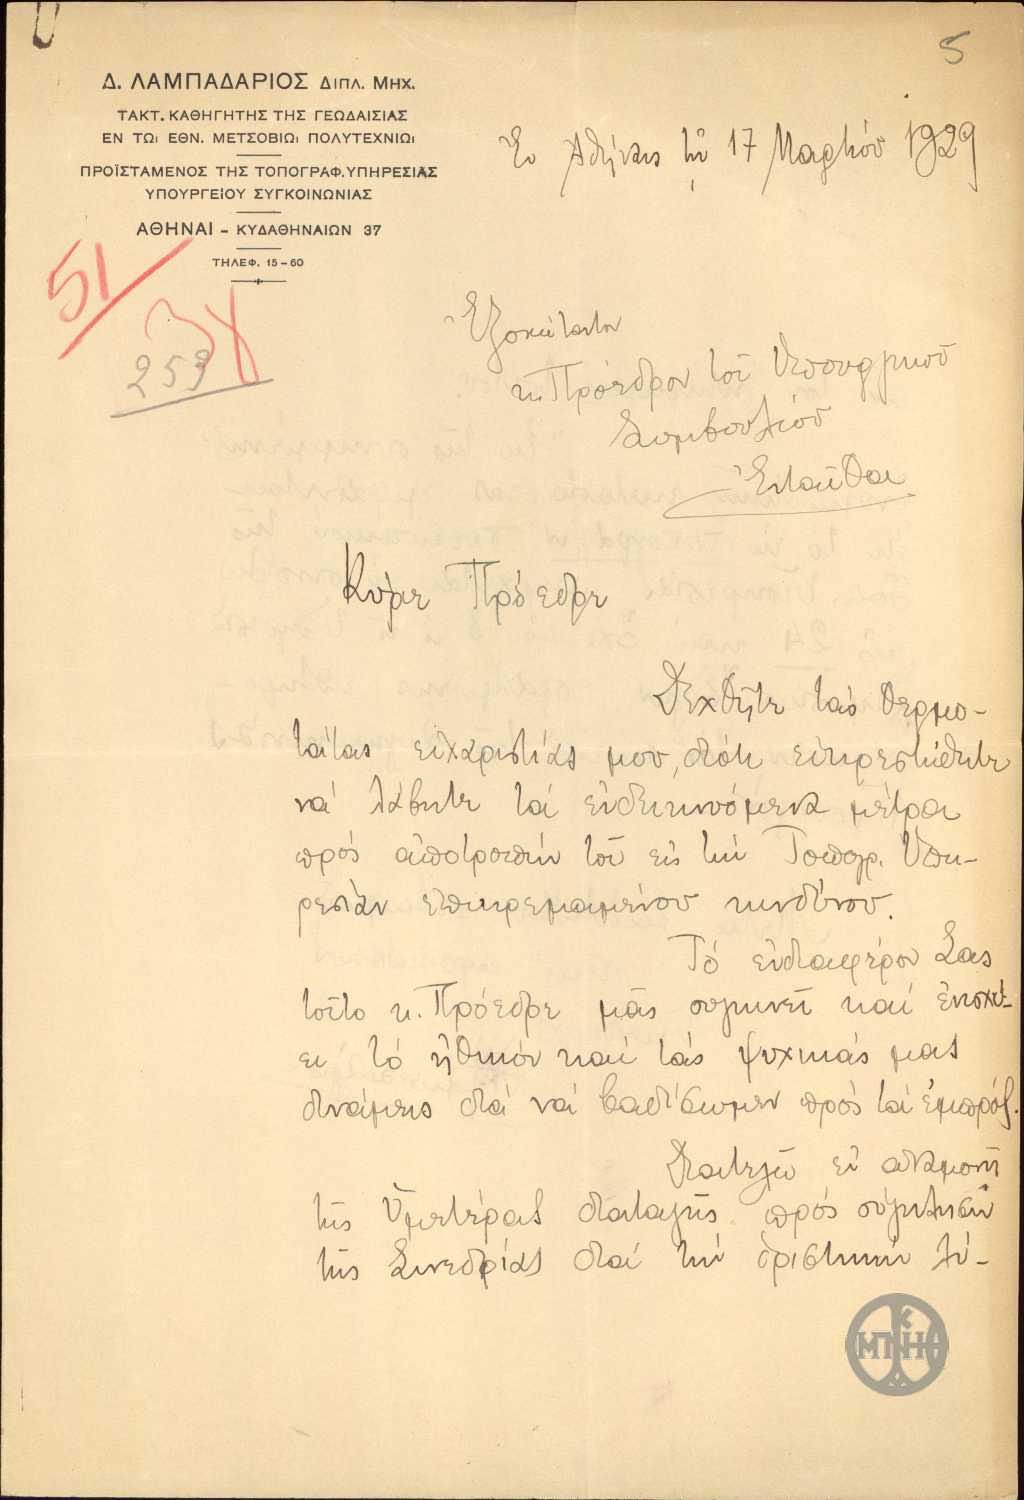 5
Δ. ΛΑΜΠΑΔΑΡΙΟΣ ΔΙΠΛ. ΜΗΧ.
ΤΑΚΤ. ΚΑΘΗΓΗΤΗΣ ΤΗΣ ΓΕΩΔΑΙΣΙΑΣ
ΕΝ ΤΩΙ ΕΘΝ. ΜΕΤΣΟΒΙΩΙ ΠΟΛΥΤΕΧΝΙΩΙ
ΠΡΟΪΣΤΑΜΕΝΟΣ ΤΗΣ ΤΟΠΟΓΡΑΦ. ΥΠΗΡΕΣΙΑΣ
ΥΠΟΥΡΓΕΙΟΥ ΣΥΓΚΟΙΝΩΝΙΑΣ
ΑΘΗΝΑΙ - ΚΥΔΑΘΗΝΑΙΩΝ 37
ΤΗΛΕΦ. 15-60
Ἐν Ἀθήναις τῇ 17 Μαρτίου 1929
51
253
Ἐξοχώτατον
κ. Πρόεδρον τοῦ Ὑπουργικοῦ
Συμβουλίου
Ἐνταῦθα
Κύριε Πρόεδρε
Δεχθῆτε τάς θερμο-
τάτας εὐχαριστίας μου, διότι εὐηρεστήθητε
νά λάβητε τά ἐνδεικνυόμενα μέτρα
πρός ἀποτροπήν τοῦ εἰς τήν Τοπογρ. Ὑπη-
ρεσίαν ἐπικρεμαμένου κινδύνου.
Τό ἐνδιαφέρον Σας
τοῦτο κ. Πρόεδρε μᾶς συγκινεῖ καί ἐνισχύ-
ει τό ἠθικόν καί τάς ψυχικάς μας
δυνάμεις διά νά βαδίσωμεν πρός τά ἐμπρός.
Διατελῶ ἐν ἀναμονῇ
τῆς Ὑμετέρας διαταγῆς πρός σύγκλησιν
τῆς Συνεδρίας διά τήν ὁριστικήν λύ-
ΜΠΚΗΘ